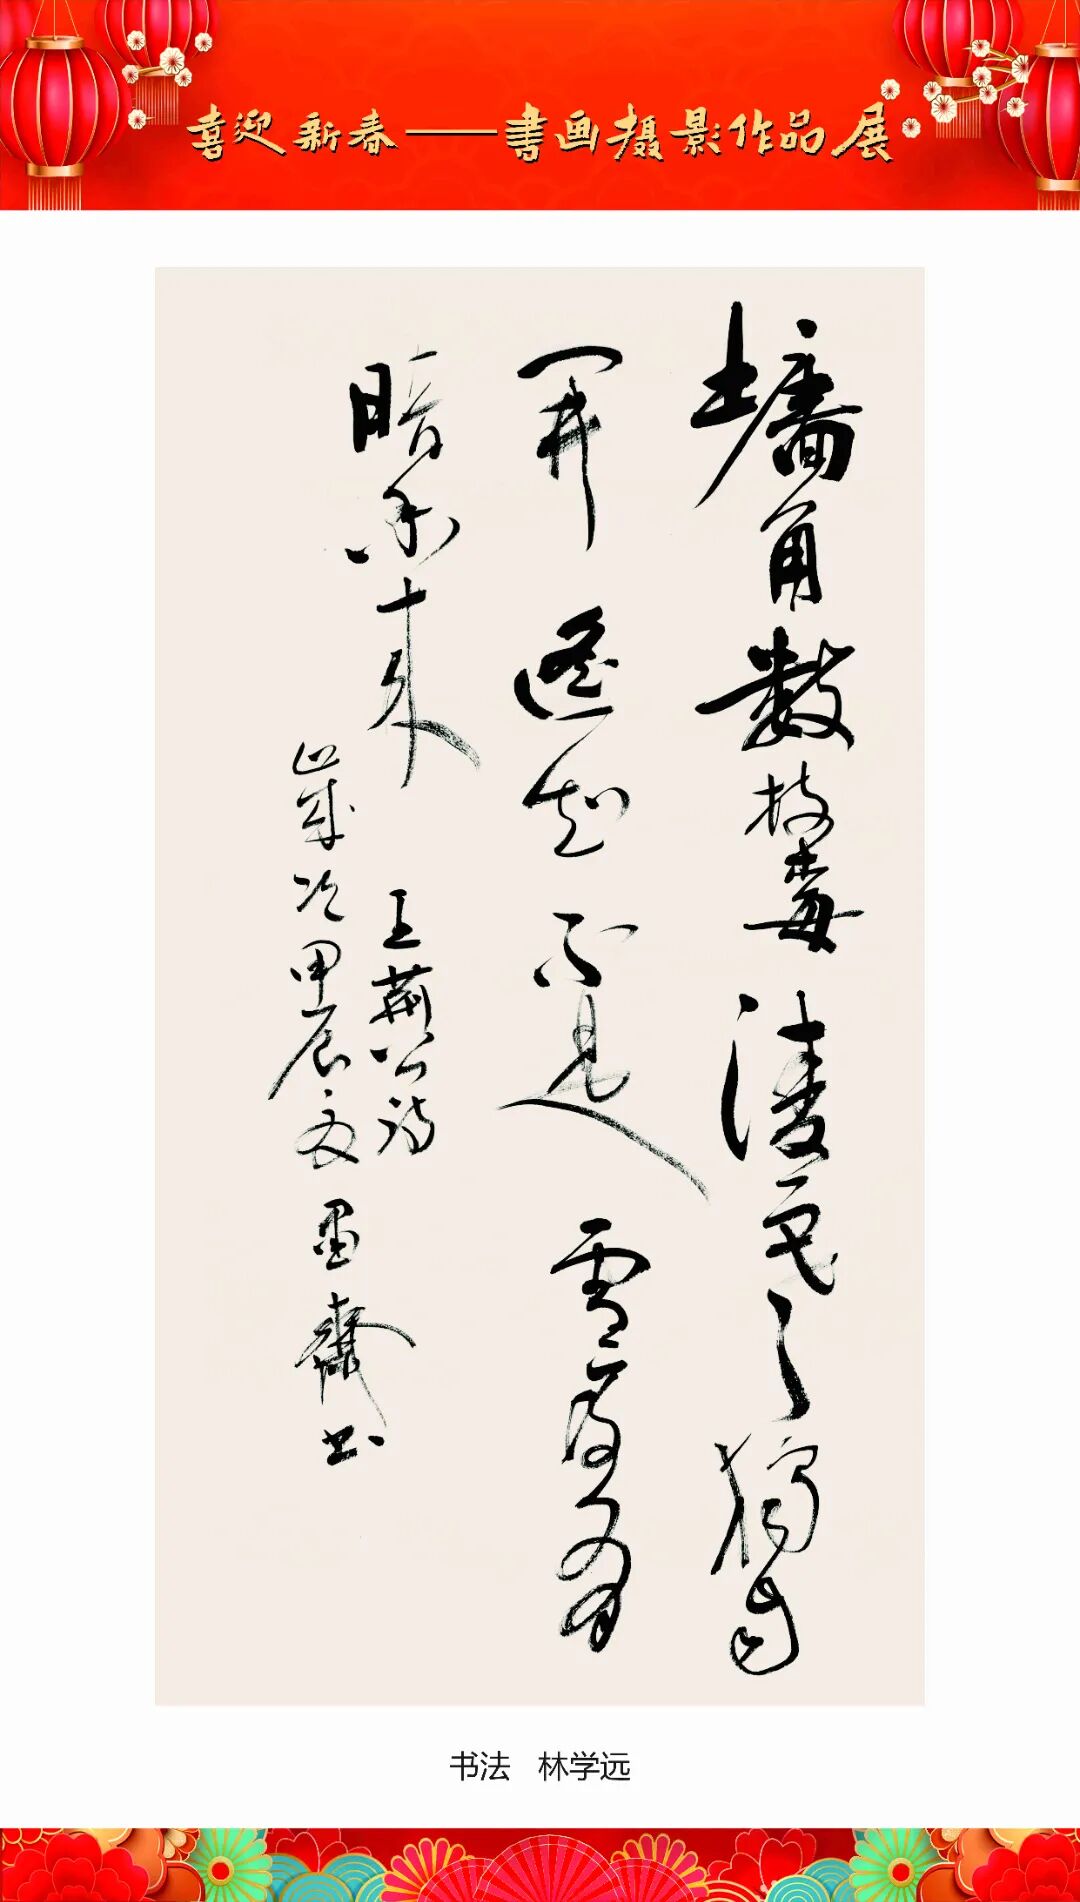 喜迎新春——书画摄影作品展
墙角數枝梅凌寒獨自
開遥知不是雪為有
暗香来
王荆公诗
歲次甲辰夏齋书
书法 林学远